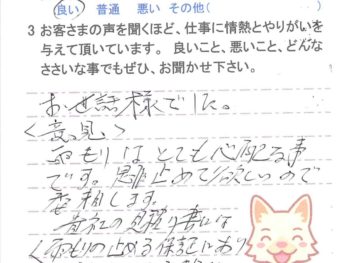 良い 普通 悪い その他(
3 お客さまの声を聞くほど、仕事に情熱とやりがいを
与えて頂いています。 良いこと、悪いこと、どんな
ささいな事でもぜひ、お聞かせ下さい。
お世話様でした。
〈意見〉
雨もりはとても心配な事
です。是非止めて欲しいので
委頼します。
貴社の見積り書には
く雨もりの止める保証において